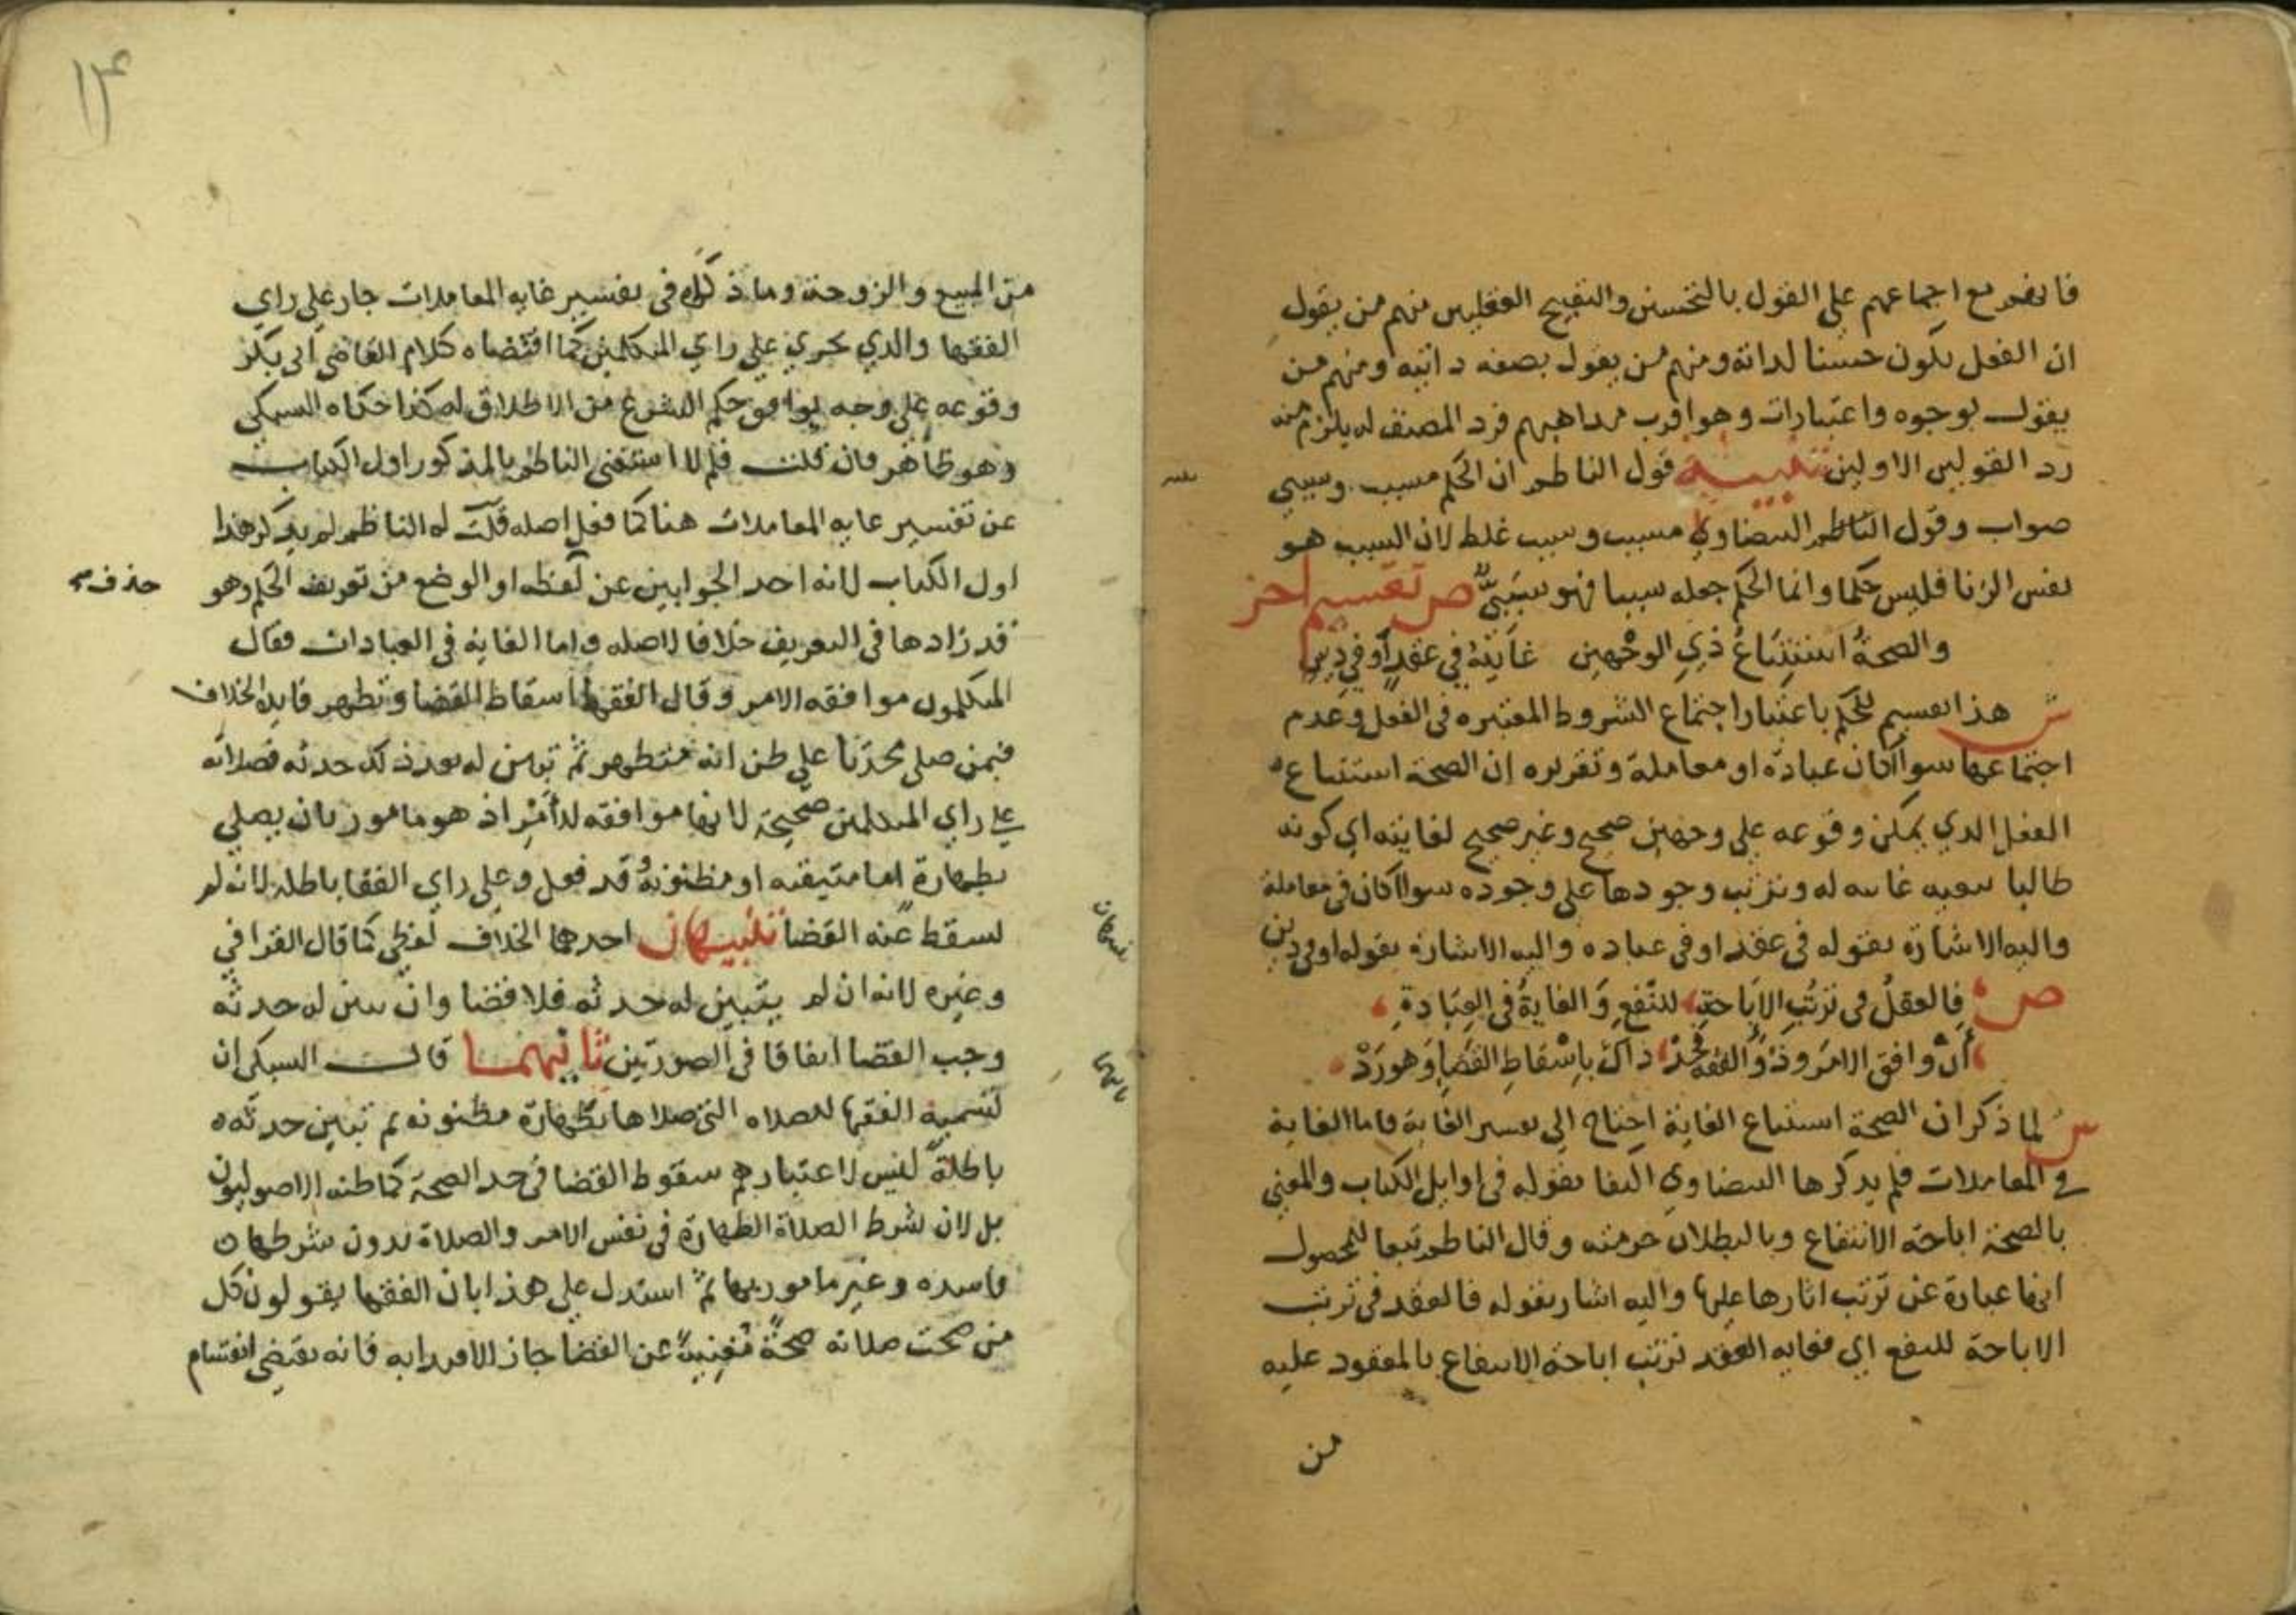 فانهم مع اجماعهم على القول بالتحسين والتقبيح العقليين منهم من يقول
ان الفعل يكون حسنا لذاته ومنهم من يقول بصفه ذاتيه ومنهم من
يقول بوجوه واعتبارات وهو اقرب مذاهبهم فرد المصنف له يلزم منه
رد القولين الاولين تنبيه قول الناظم ان الحكم مسبب وسببي
صواب وقول الناظم البيضاوي مسبب وسبب غلط لان السبب هو
نفس الزنا فليس حكما وانما الحكم جعله سببا فهو سببيٌّ ص تقسيم اخر
والصحةُ استتباعُ ذي الوجهين غايته في عقد أو في دين
ش هذا تقسيم للحكم باعتبار اجتماع الشروط المعتبره في الفعل وعدم
اجتماعها سوا اكان عبادة او معاملة وتقريره ان الصحة استتباع
الفعل الذي يمكن وقوعه على وجهين صحيح وغير صحيح لغايته اي كونه
طالبا تبعيه غايته له وترتب وجودها على وجوده سوا اكان في معاملة
واليه الاشارة بقوله في عقد او في عباده واليه الاشارة بقوله او في دين
ص فالعقدُ في ترتُّبِ الاباحةِ للنفعِ وَالغايةُ في العِبَادةِ
أنْ وافق الامرَ وذُو الفقه فخذ ذاك بإسْقاطِ القضا وهورَدْ
ش لما ذكر ان الصحة استتباع الغاية احتاج الى تفسير الغاية فاما الغاية
في المعاملات فلم يذكرها البيضاوي اكتفا بقوله في اوايل الكتاب والمعني
بالصحة اباحة الانتفاع وبالبطلان حرمته وقال الناظم تبعا للمحصول
انها عبارة عن ترتب اثارها عليها واليه اشار بقوله فالعقد في ترتب
الاباحة للنفع اي فغايه العقد ترتب اباحة الانتفاع بالمعقود عليه
من
١٣
من المبيع والزوجة وما ذكره في تفسير غايه المعاملات جار على راي
الفقها والذي يجري على راي المتكلمين كما اقتضاه كلام القاضي ابي بكر
وقوعه على وجه يوافق حكم الشرع من الاطلاق له كذا حكاه السبكي
وهو ظاهر فان قلت فلم لا استغنى الناظم بالمذكور اول الكتاب
عن تفسير غايه المعاملات هنا كما فعل اصله قلت له الناظم لم يذكر هذا
اول الكتاب لانه احد الجوابين عن لفظه او الوضع من تعريف الحكم وهو
حذف
قد زادها في التعريف خلافا لاصله واما الغاية في العبادات فقال
المتكلمون موافقه الامر وقال الفقها اسقاط القضا وتظهر فايدة الخلاف
فيمن صلى محدثا على ظن انه متطهر ثم تبين له بعد ذلك حدثه فصلاته
على راي المتكلمين صحيحة لانها موافقه للأمر اذ هو مامور بان يصلي
بطهارة اما متيقنه او مظنونةٌ قد فعل وعلى راي الفقها باطله لانه لم
يسقط عنه القضا تنبيهان احدهما الخلاف لفظي كما قال القرافي
تنبيهان
وغيره لانه ان لم يتبين له حدثه فلا قضا وان تبين له حدثه
وجب القضا اتفاقا في الصورتين ثانيهما قال السبكي ان
ثانيهما
تسمية الفقها للصلاه التي صلاها بطهارة مظنونه ثم تبين حدثه
باطلةً ليس لاعتبارهم سقوط القضا في حد الصحة كما ظنه الاصوليون
بل لان شرط الصلاة الطهارة في نفس الامر والصلاة بدون شرطها
فاسده وغير مامور بها ثم استدل على هذا بان الفقها يقولون كل
من صحت صلاته صحةً مُغنيةً عن القضا جاز الاقتدا به فانه يقتضي انقسام